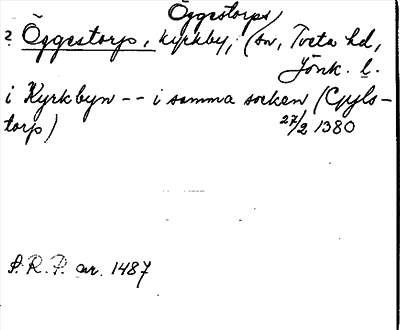 Öggestorps
? Öggestorp, kyrkby, (sn, Tveta hd,
Jönk. l.
i Kyrkbyn -- i samma socken (Gyls-
torp) 27/2 1380
S.R.P. nr. 1487